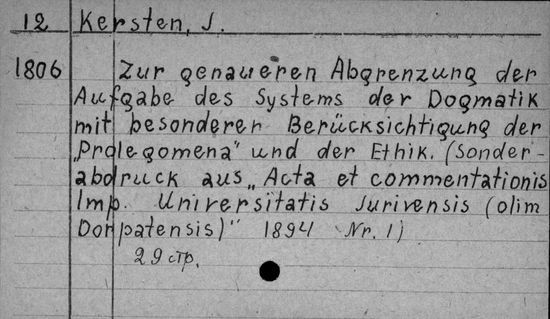 12 Kersten, J.
1806 Zur genaueren Abgrenzung der
Aufgabe des Systems der Dogmatik
mit besonderer Berücksichtigung der
„Prolegomena" und der Ethik. (Sonder-
abdruck aus „Acta et commentationis
Imp. Universitatis Jurivensis (olim
Dorpatensis)" 1894 Nr. 1)
29 стр.